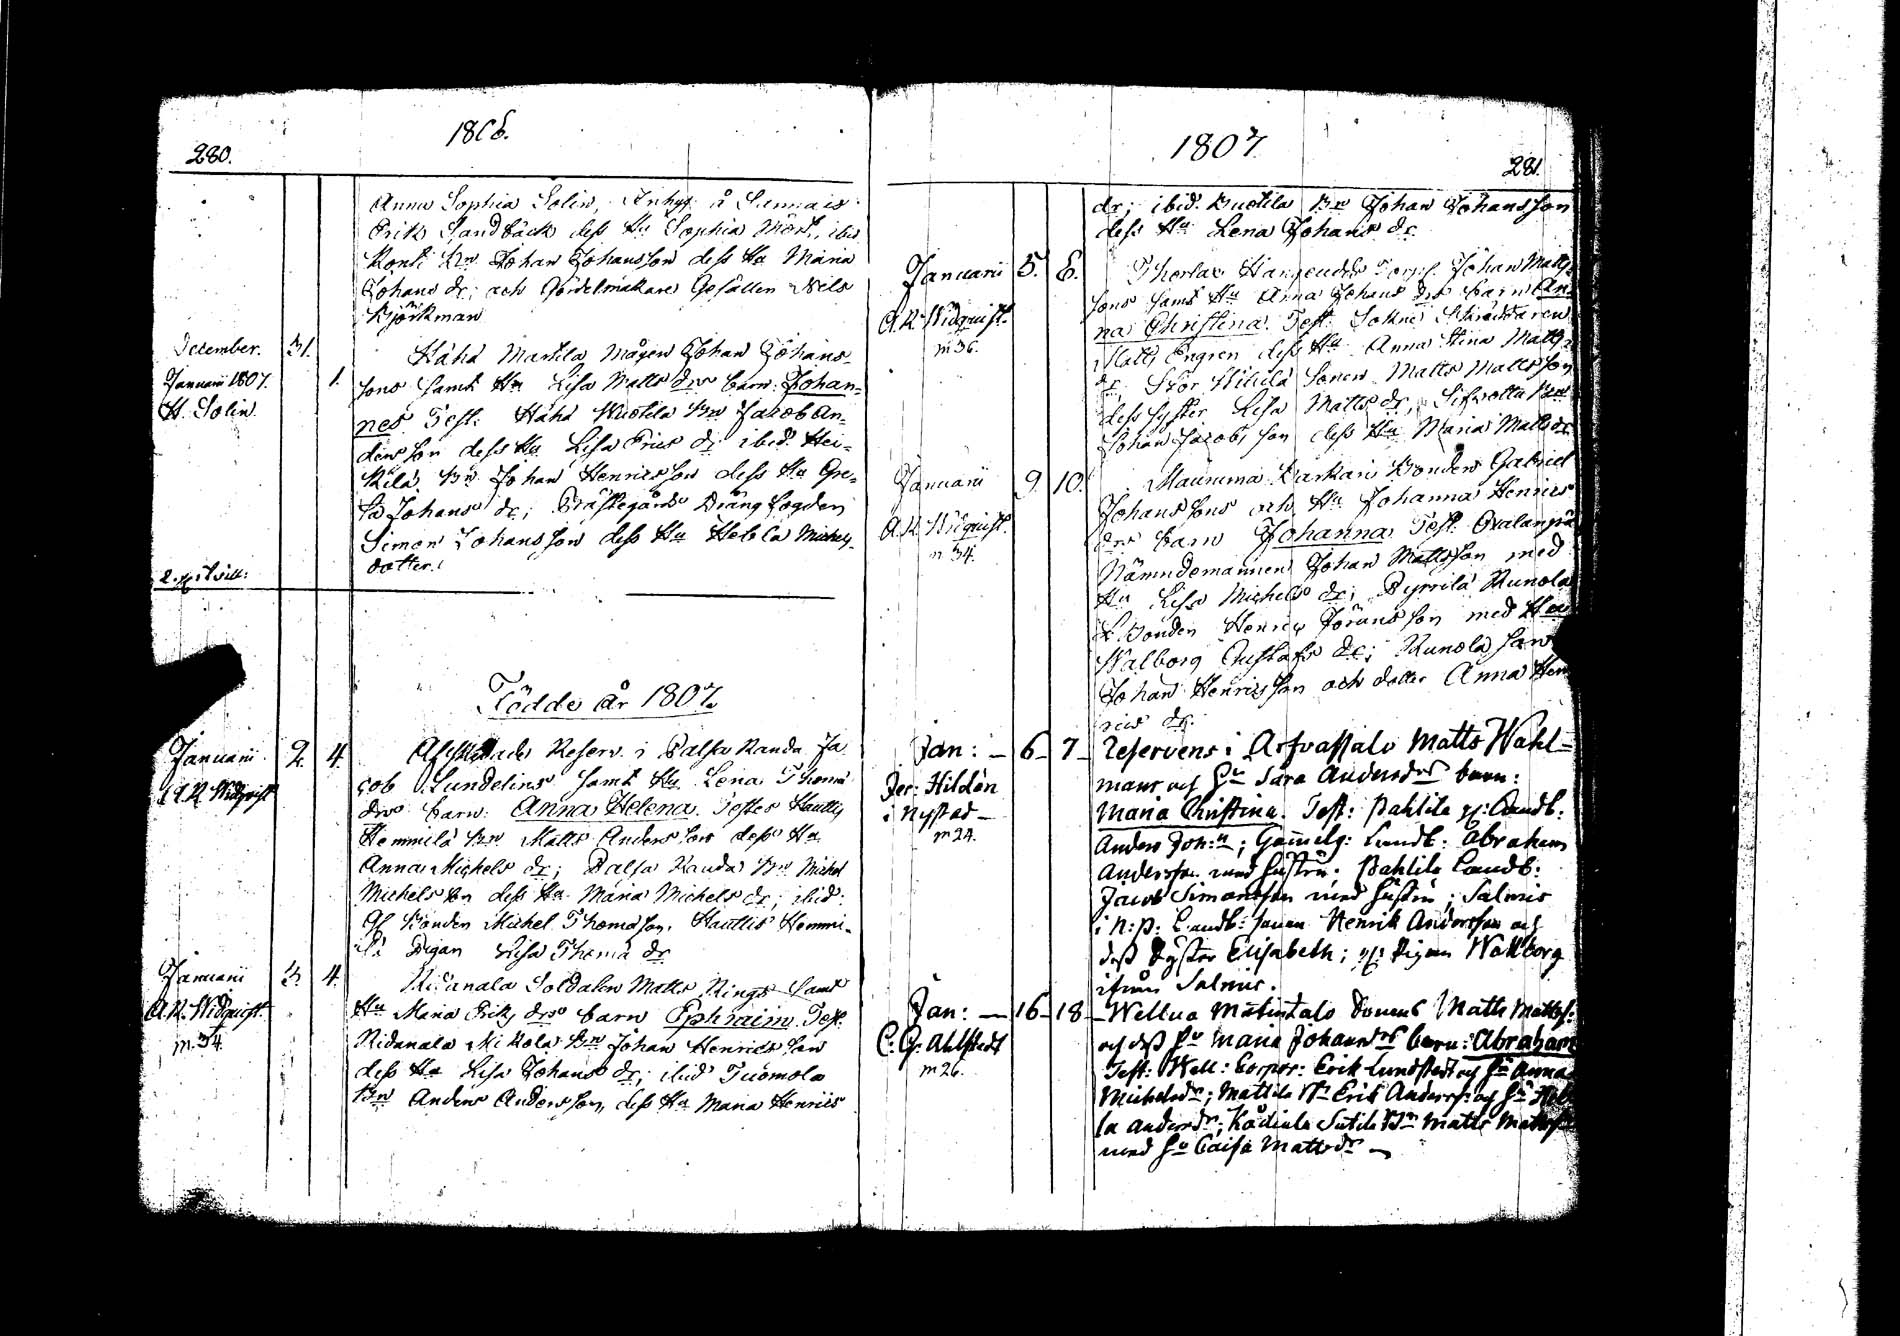 280.
1806.
Anna Sophia Solin, Inhys: å Sunnais
Erik Sandbäck dess Hu Sophia Mört, ibid
Konti Bn Johan Johansson dess Hu Maria
Johans dr; och Gördelmakare Gesällen Nils
Björkman
December. 31.
Januarii 1807. 1.
H. Solin
Håhä Martila Mågen Johan Johans-
sons samt Hu Lisa Matts drs barn: Johan-
nes Test. Håhä Kuotila Bn Jacob An-
dersson dess Hu Lisa Erics dr ibid. Hei-
kilä Bn Johan Henricsson dess Hu Gre-
ta Johans dr; Prästegårds Dräng fogden
Simon Johansson dess Hu Hebla Michels
dotter.
Födde År 1807.
Januarii 2. 4.
A. R. Widqvist
Reserv. i Palsa Randa Ja
cob Lundelins samt Hu Lena Thomæ
drs barn: Anna Helena. Testes Hautis
Hemmilä Bn Matts Andersson dess Hu
Anna Michels dr; Palsa Randa Bn Michel
Michelsson dess Hu Maria Michels dr; ibid:
Gl Bonden Michel Thomasson, Hauttis Hemmi-
lä Pigan Lisa Thomæ dr
Januarii 3. 4.
A. R. Widqvist.
m. 34.
Ridanala Soldaten Matts Rings samt
Hu Maria Eriks drs barn Ephraim. Test.
Ridanala Mikola Bn Johan Henricsson
dess Hu Lisa Johans dr; ibid Tuomola
Bn Anders Andersson, dess Hu Maria Henrics
1807
281.
dr; ibid. Kuotila Bn Johan Johansson
dess Hu Lena Johans dr
Januarii 5. 6.
A. R. Widqvist.
m 36.
Torp. Johan Matts-
sons samt Hu Anna Johans drs barn An-
na Christina. Test. Sokne Skräddaren
Matts Engren dess Hu Anna Stina Matts
dr Stor Sonen Matts Mattsson
dess syster Lisa Matts dr, Bn
Johan Jacobsson dess Hu Maria Matts dr
Januarii 9. 10.
A. R. Widqvist.
m 34.
Mauruma Karkari Bonden Gabriel
Johanssons och Hu Johanna Henrics
drs barn Johanna Test.
Nämndemannen Johan Mattsson med
Hu Lisa Michels dr; Pyrrilä Kunola
Bonden Henric Göransson med Hu
Walborg Gustafs dr; Kunola Son
Johan Henricsson och dotter Anna Hen
rics dr.
Jan: — 6 — 7 —
Jer: Hildén
i Nystad —
m 24.
Reservens i Arfvassalo Matts Wahl-
mans och Hu Sara Andersdrs barn:
Maria Christina. Test: Pahtila Landb:
Anders Joh:n; Gamelg: Landb: Abraham
Andersson med hustru; Pahtila Landb:
Jacob Simonsson med hustru; Salmis
i N: P: Landb: sonen Henrik Andersson och
dess Syster Elisabeth; Pigan Wallborg
ifrån Salmis.
Jan: — 16 — 18 —
C. G. Ahlstedt
m 26.
Wellua Matts Matts:
och dess Hu Maria Johansdrs barn: Abraham
Test: Well: Corpor: Erik Lundstedt och Hu Anna
Michelsdr; Mattila Bn Erik Anderss: och Hu
la Andersdr; Sutila Bn Matts
med Hu Caisa Mattsdr —